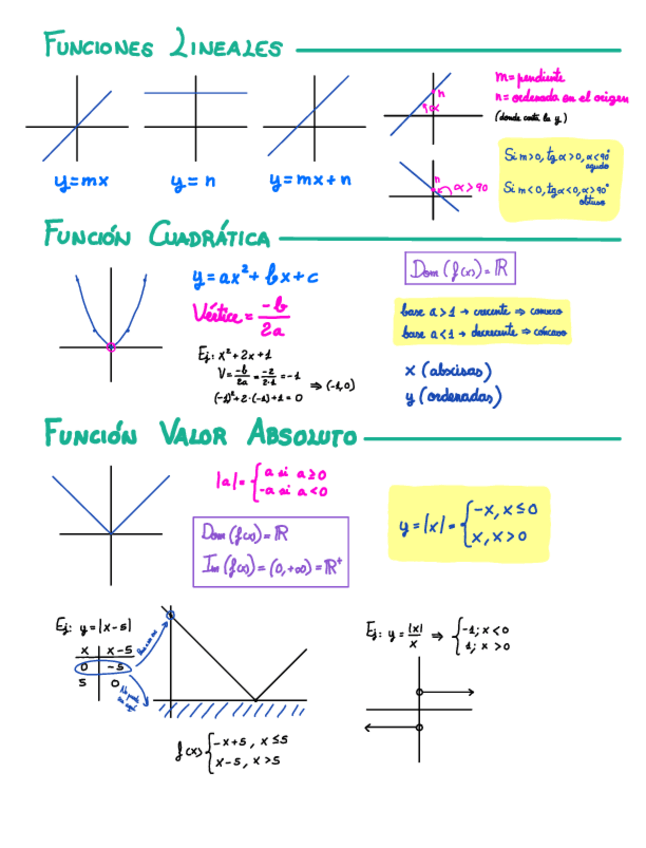 FUNCIONES LINEALES
y=mx
y=n
y=mx+n
n
α
n
α>90
m=pendiente
n=ordenada en el origen
(donde corta la y)
Si m>0, tg α>0, α<90°
agudo
Si m<0, tg α<0, α>90°
obtuso
FUNCIÓN CUADRÁTICA
y=ax²+bx+c
Vértice = -b/2a
Ej: x²+2x+1
V = -b/2a = -2/2·1 = -1
(-1)²+2·(-1)+1=0
⇒ (-1,0)
Dom (f(x))=ℝ
base a>1 → creciente ⇒ convexo
base a<1 → decreciente ⇒ cóncavo
x (abscisas)
y (ordenadas)
FUNCIÓN VALOR ABSOLUTO
|a|= { a si a≥0
-a si a<0
Dom (f(x))=ℝ
Im (f(x))=(0,+∞)=ℝ⁺
y=|x|= { -x, x≤0
x, x>0
Ej: y=|x-5|
x | x-5
0 | -5
5 | 0
No puede
f(x) { -x+5, x≤5
x-5, x>5
Ej: y= |x|/x ⇒ { -1; x<0
1; x>0